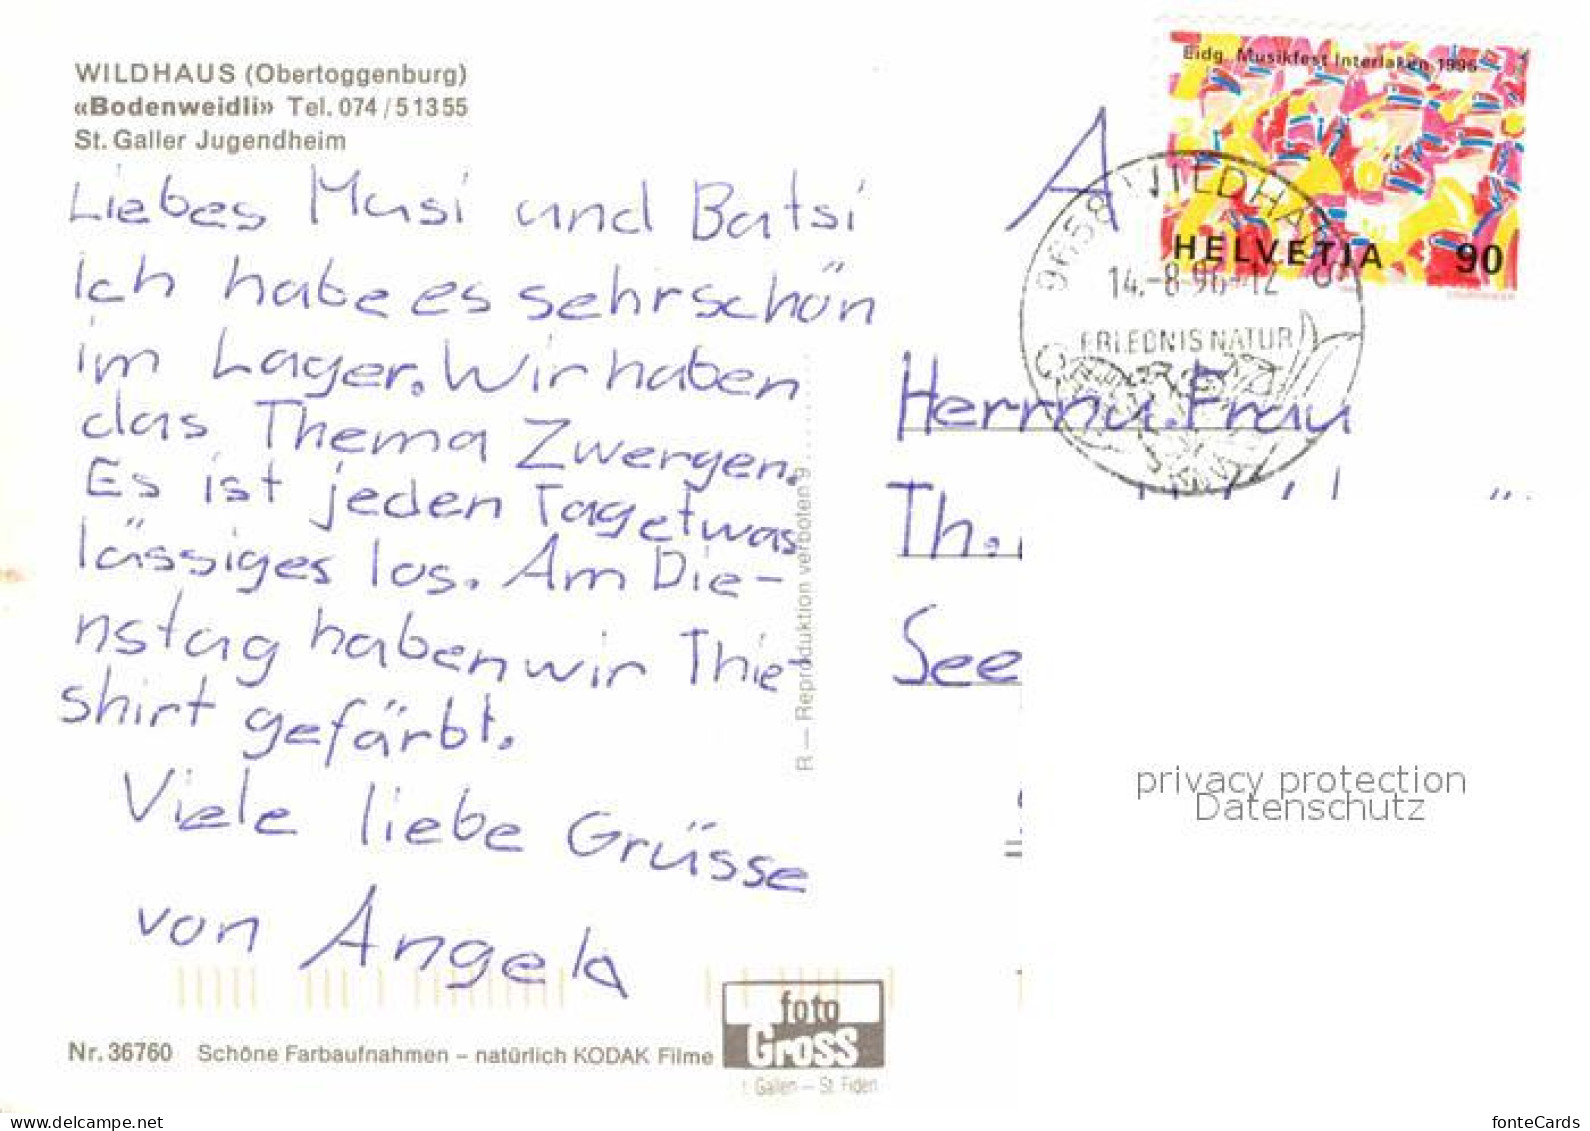 WILDHAUS (Obertoggenburg)
«Bodenweidli» Tel. 074/51355
St. Galler Jugendheim
Liebes Musi und Batsi
Ich habe es sehr schön
im Lager. Wir haben
das Thema Zwergen.
Es ist jeden Tag etwas
lässiges los. Am Die-
nstag haben wir Thie-
shirt gefärbt.
Viele liebe Grüsse
von Angela
Nr. 36760 Schöne Farbaufnahmen – natürlich KODAK Filme
foto
Gross
t. Gallen – St. Fiden
R — Reproduktion verboten 9
Eidg. Musikfest Interlaken 1996
HELVETIA 90
9658 WILDHAUS
14.-8.96-12
ERLEBNIS NATUR
A
Herrn u. Frau
Th.
See
privacy protection
Datenschutz
www.delcampe.net
fonteCards